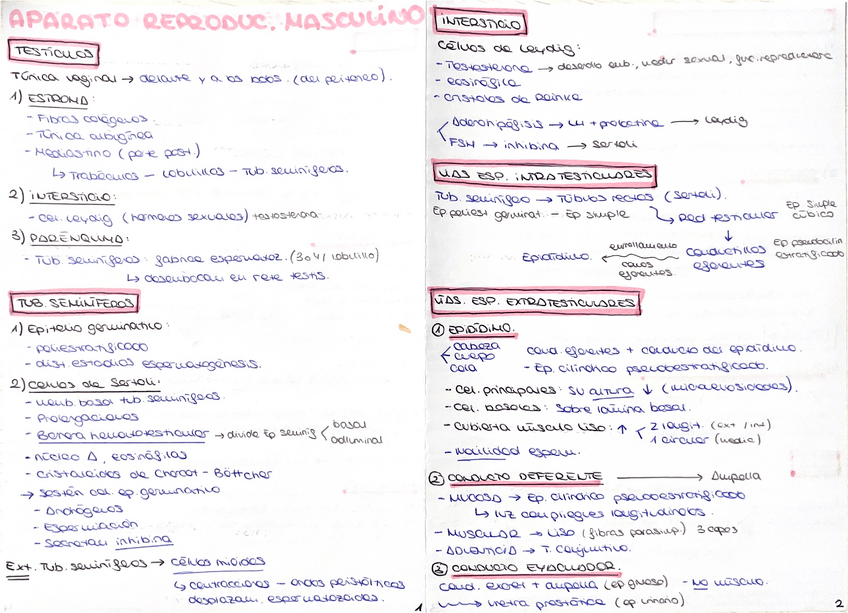 APARATO REPRODUC. MASCULINO
TESTÍCULOS
Túnica vaginal → delante y a los lados. (del peritoneo).
1) ESTROMA:
- Fibras colágenas.
- Túnica albugínea
- Mediastino (parte post.)
↳ Trabéculas - lobulillos - tub. seminíferos.
2) INTERSTICIO:
- Cel. Leydig (hormonas sexuales) testosterona
3) PARÉNQUIMA:
- Tub. seminíferos: fabrica espermatoz. (3 o 4 / lobulillo)
↳ desembocan en rete testis.
TUB. SEMINÍFEROS
1) Epitelio germinativo:
- poliestratificado
- dist. estadios espermatogénesis.
2) Células de Sertoli.
- Memb. basal tub. seminíferos.
- Prolongaciones
- Barrera hematotesticular → divide Ep seminíg < basal
adluminal
- núcleo Δ, eosinófilas
- Cristaloides de Charcot - Böttcher
→ Sostén cel. ep. germinativo
- Andrógenos
- Espermiación
- Secretan inhibina
Ext. Tub. seminíferos → células mioides
↳ contracciones - ondas peristálticas
desplazam. espermatozoides.
1
INTERSTICIO
Células de Leydig:
- Testosterona → desarrollo emb., madur sexual, func. reproductora
- eosinófila
- Cristales de Reinke
Adenohipófisis → LH + prolactina → Leydig
FSH → inhibina → Sertoli
VÍAS ESP. INTRATESTICULARES
Tub. seminífero → Túbulos rectos (Sertoli).
Ep poliest germinat. - Ep simple
↳ Red testicular Ep simple cúbico
↓
Epidídimo. ← enrollamiento conos eferentes Conductillos eferentes Ep pseudocilin estratificado
VÍAS. ESP. EXTRATESTICULARES
① EPIDÍDIMO.
cabeza
cuerpo
cola
cond. eferentes + conducto del epidídimo.
- Ep. cilíndrico pseudoestratificado.
- Cel. principales: su altura ↓ (microvellosidades).
- Cel. basales: sobre lámina basal.
- Cubierta músculo liso: ↑ < 2 longit. (ext / int)
1 circular (media)
- Movilidad esperm.
② CONDUCTO DEFERENTE → Ampolla
- MUCOSA → Ep. cilíndrico pseudoestratificado
↳ luz con pliegues longitudinales.
- MUSCULAR → Liso (fibras parasimp.) 3 capas
- ADVENTICIA → T. Conjuntivo.
③ CONDUCTO EYACULADOR.
cond. excret + ampolla (ep glucoso) - No músculo.
→ uretra prostática (ep urinario)
2